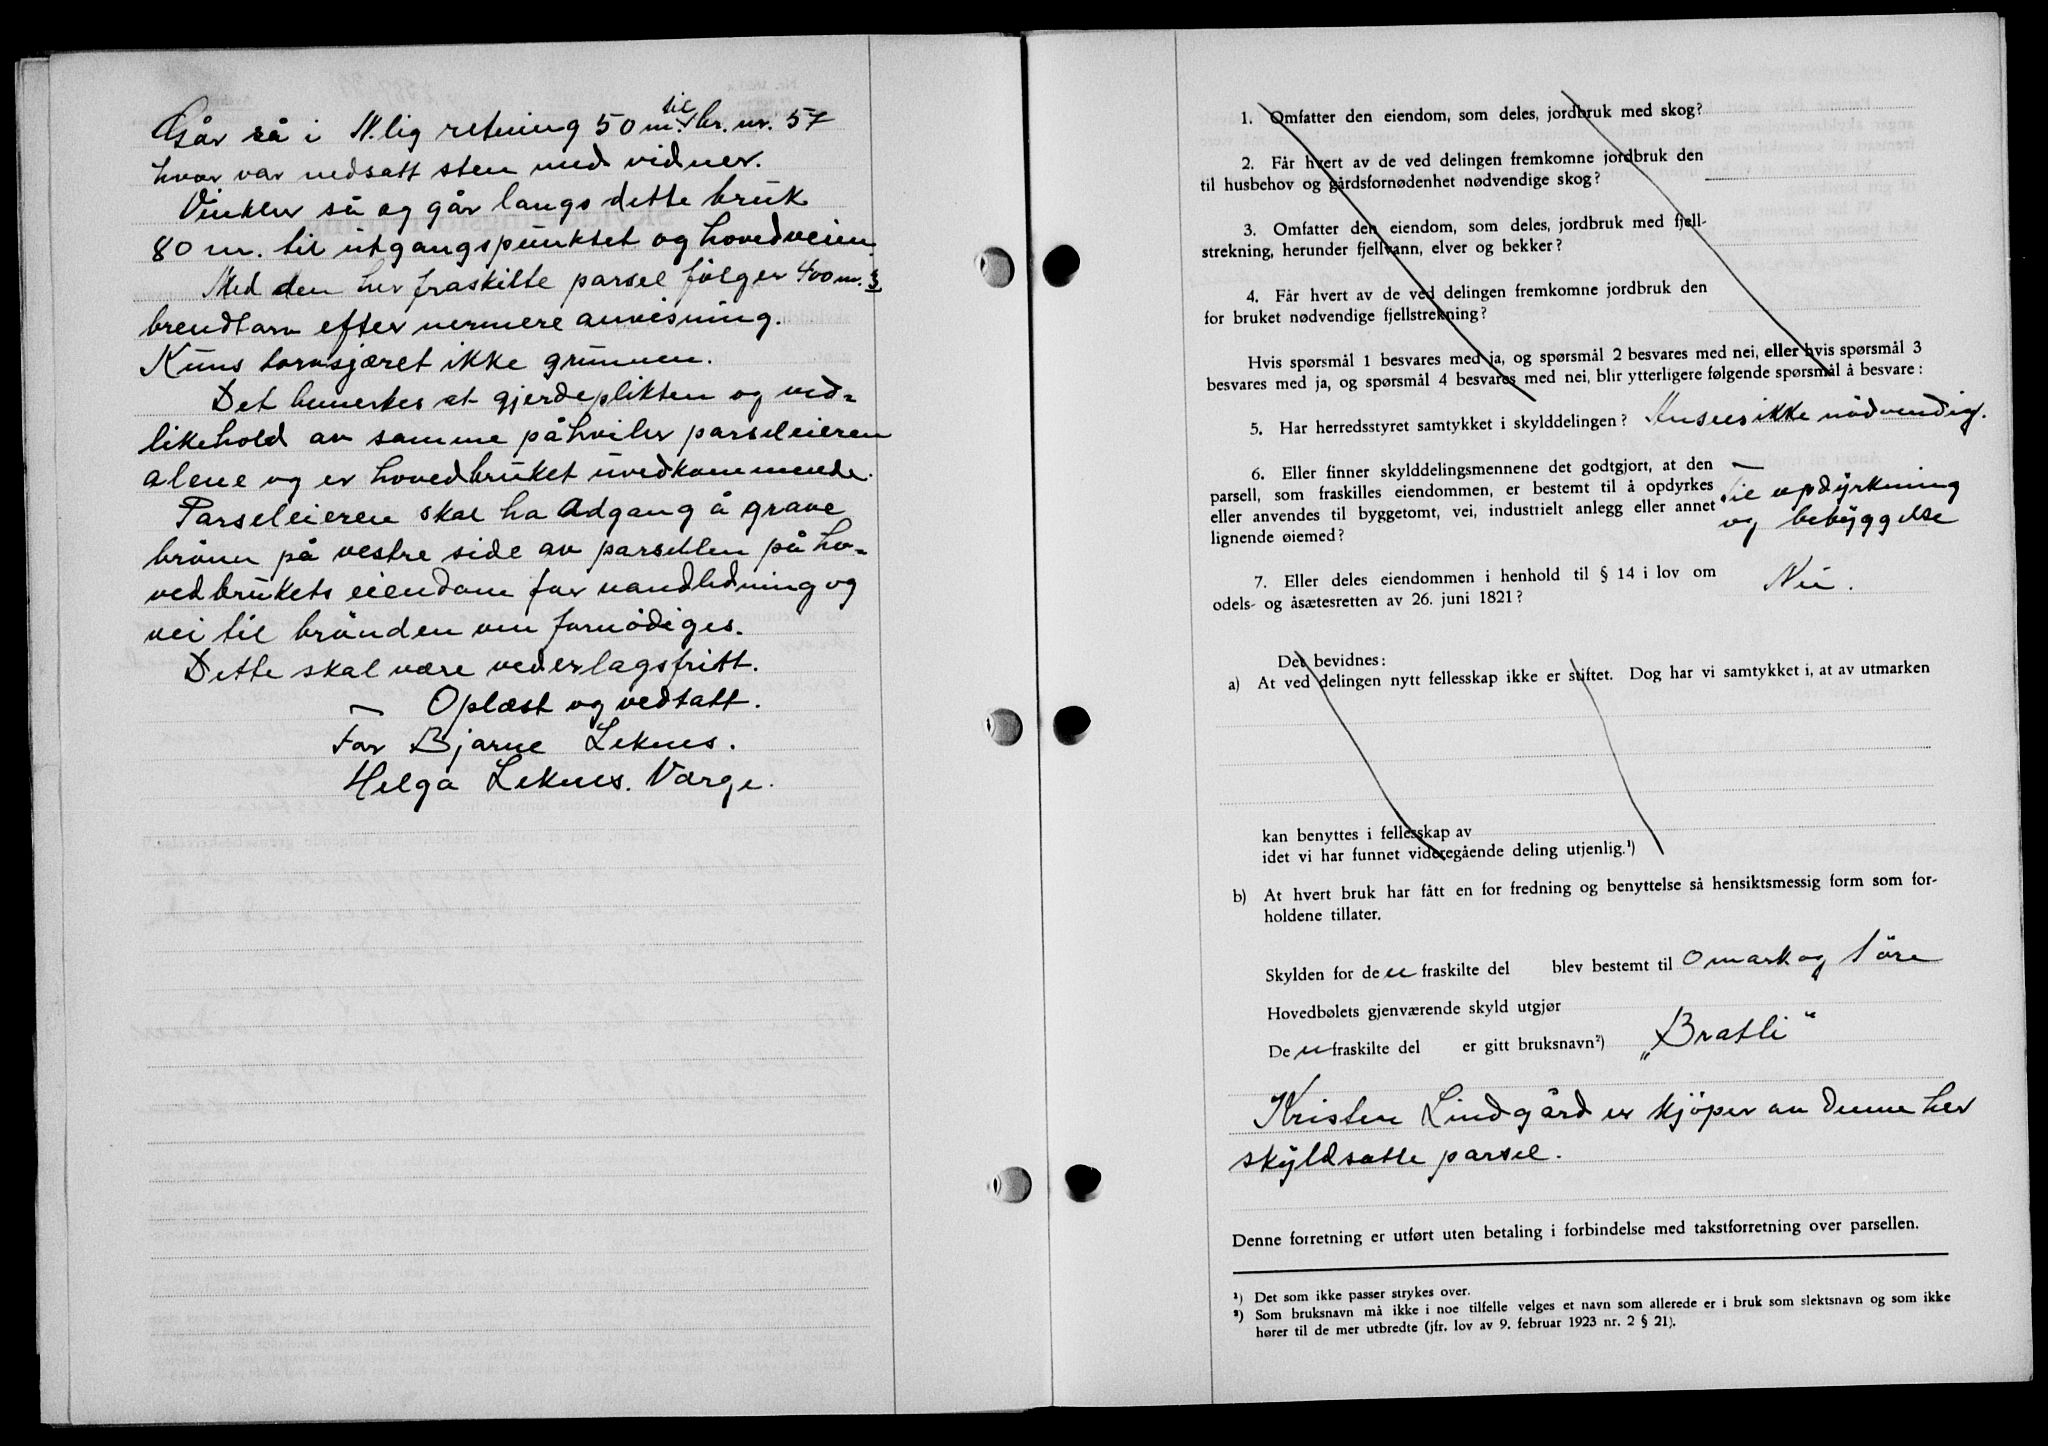 Går så i N.lig retning 50 m. til br. nr. 57
hvor var nedsatt sten med vidner.
Vinkler så og går langs dette bruk
80 m. til utgangspunktet og hovedveien.
Med den her fraskilte parsel følger 400 m.3
brendtorv efter nermere anvisning.
Kuns torvsjæret ikke grunnen.
Det bemerkes at gjerdeplikten og ved-
likehold av samme påhviler parseleieren
alene og er hovedbruket uvedkommende.
Parseleieren skal ha adgang å grave
brönn på vestre side av parsellen på ho-
vedbrukets eiendom for vandledning og
vei til brönden om fornödiges.
Dette skal være vederlagsfritt.
Oplæst og vedtatt.
For Bjarne Leknes.
Helga Leknes. Værge.
1. Omfatter den eiendom, som deles, jordbruk med skog?
2. Får hvert av de ved delingen fremkomne jordbruk den
til husbehov og gårdsfornødenhet nødvendige skog?
3. Omfatter den eiendom, som deles, jordbruk med fjell-
strekning, herunder fjellvann, elver og bekker?
4. Får hvert av de ved delingen fremkomne jordbruk den
for bruket nødvendige fjellstrekning?
Hvis spørsmål 1 besvares med ja, og spørsmål 2 besvares med nei, eller hvis spørsmål 3
besvares med ja, og spørsmål 4 besvares med nei, blir ytterligere følgende spørsmål å besvare:
5. Har herredsstyret samtykket i skylddelingen? Ansees ikke nödvendig.
6. Eller finner skylddelingsmennene det godtgjort, at den
parsell, som fraskilles eiendommen, er bestemt til å opdyrkes
eller anvendes til byggetomt, vei, industrielt anlegg eller annet
lignende øiemed?
Til opdyrkning
og bebyggelse
7. Eller deles eiendommen i henhold til § 14 i lov om
odels- og åsætesretten av 26. juni 1821?
Nei.
Det bevidnes:
a) At ved delingen nytt fellesskap ikke er stiftet. Dog har vi samtykket i, at av utmarken
kan benyttes i fellesskap av
idet vi har funnet videregående deling utjenlig.¹)
b) At hvert bruk har fått en for fredning og benyttelse så hensiktsmessig form som for-
holdene tillater.
Skylden for den fraskilte del blev bestemt til 0 mark og 1 öre
Hovedbølets gjenværende skyld utgjør
Den fraskilte del er gitt bruksnavn²) „Bratli“
Kristen Lindgård er kjöper av denne her
skyldsatte parsel.
Denne forretning er utført uten betaling i forbindelse med takstforretning over parsellen.
¹) Det som ikke passer strykes over.
²) Som bruksnavn må ikke i noe tilfelle velges et navn som allerede er i bruk som slektsnavn og som ikke
hører til de mer utbredte (jfr. lov av 9. februar 1923 nr. 2 § 21).